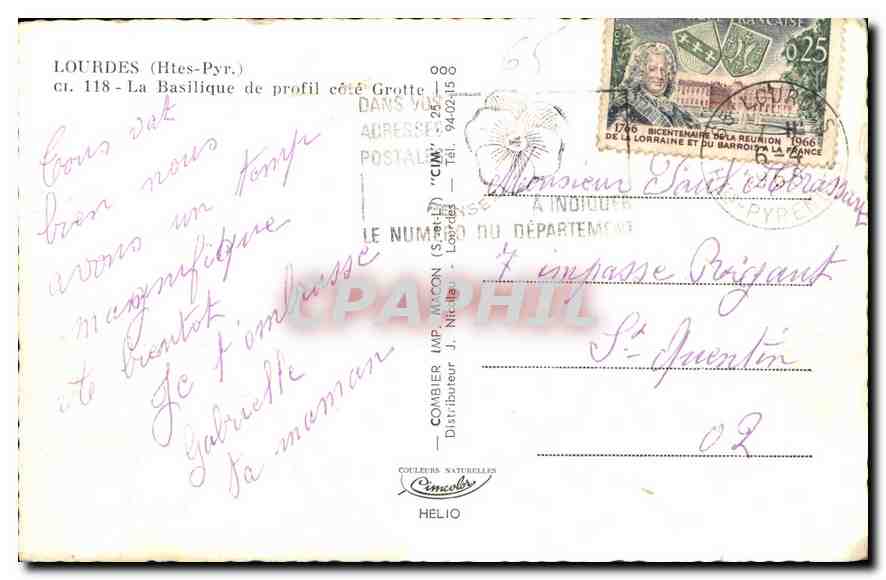 LOURDES (Htes-Pyr.)
CI. 118 - La Basilique de profil côté Grotte
Tous vat
bien nous
avons un temp
magnifique
te bientot
Je t'embrasse
Gabrielle
ta maman
— COMBIER IMP. MACON (S.-et-L.) "CIM" - 25 - 000
Distributeur J. Nicolau - Lourdes - Tél. 94-02-15
COULEURS NATURELLES
Cimcolor
HELIO
DANS VOS
ADRESSES
POSTALES
PENSEZ
A INDIQUER
LE NUMERO DU DÉPARTEMENT
65
FRANÇAISE
0,25
1766 BICENTENAIRE DE LA REUNION 1966
DE LA LORRAINE ET DU BARROIS A LA FRANCE
LOURDES
Monsieur
7 impasse
St Quentin
02
CPAPHIL